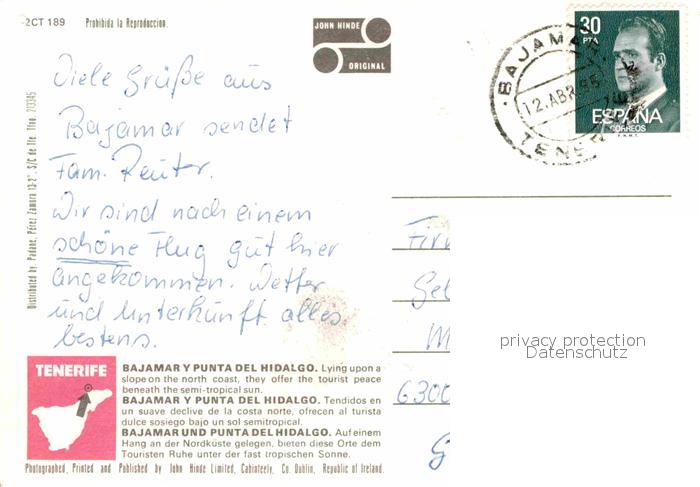 2CT 189 Prohibida la Reproduccion.
JOHN HINDE
ORIGINAL
30
PTA
ESPAÑA
CORREOS
F.N.M.T.
BAJAMAR
12.ABR
TENER
Viele Grüße aus
Bajamar sendet
Fam. Reuter.
Wir sind nach einem
schöne Flug gut hier
angekommen. Wetter
und Unterkunft alles
bestens.
Fir
Gel
M
6300
G
privacy protection
Datenschutz
Distributed by: Padane, Pérez Zamora 13-2°, S/C de Tfe. Tfno. 213345
TENERIFE
BAJAMAR Y PUNTA DEL HIDALGO. Lying upon a
slope on the north coast, they offer the tourist peace
beneath the semi-tropical sun.
BAJAMAR Y PUNTA DEL HIDALGO. Tendidos en
un suave declive de la costa norte, ofrecen al turista
dulce sosiego bajo un sol semitropical.
BAJAMAR UND PUNTA DEL HIDALGO. Auf einem
Hang an der Nordküste gelegen, bieten diese Orte dem
Touristen Ruhe unter der fast tropischen Sonne.
Photographed, Printed and Published by John Hinde Limited, Cabinteely, Co. Dublin, Republic of Ireland.